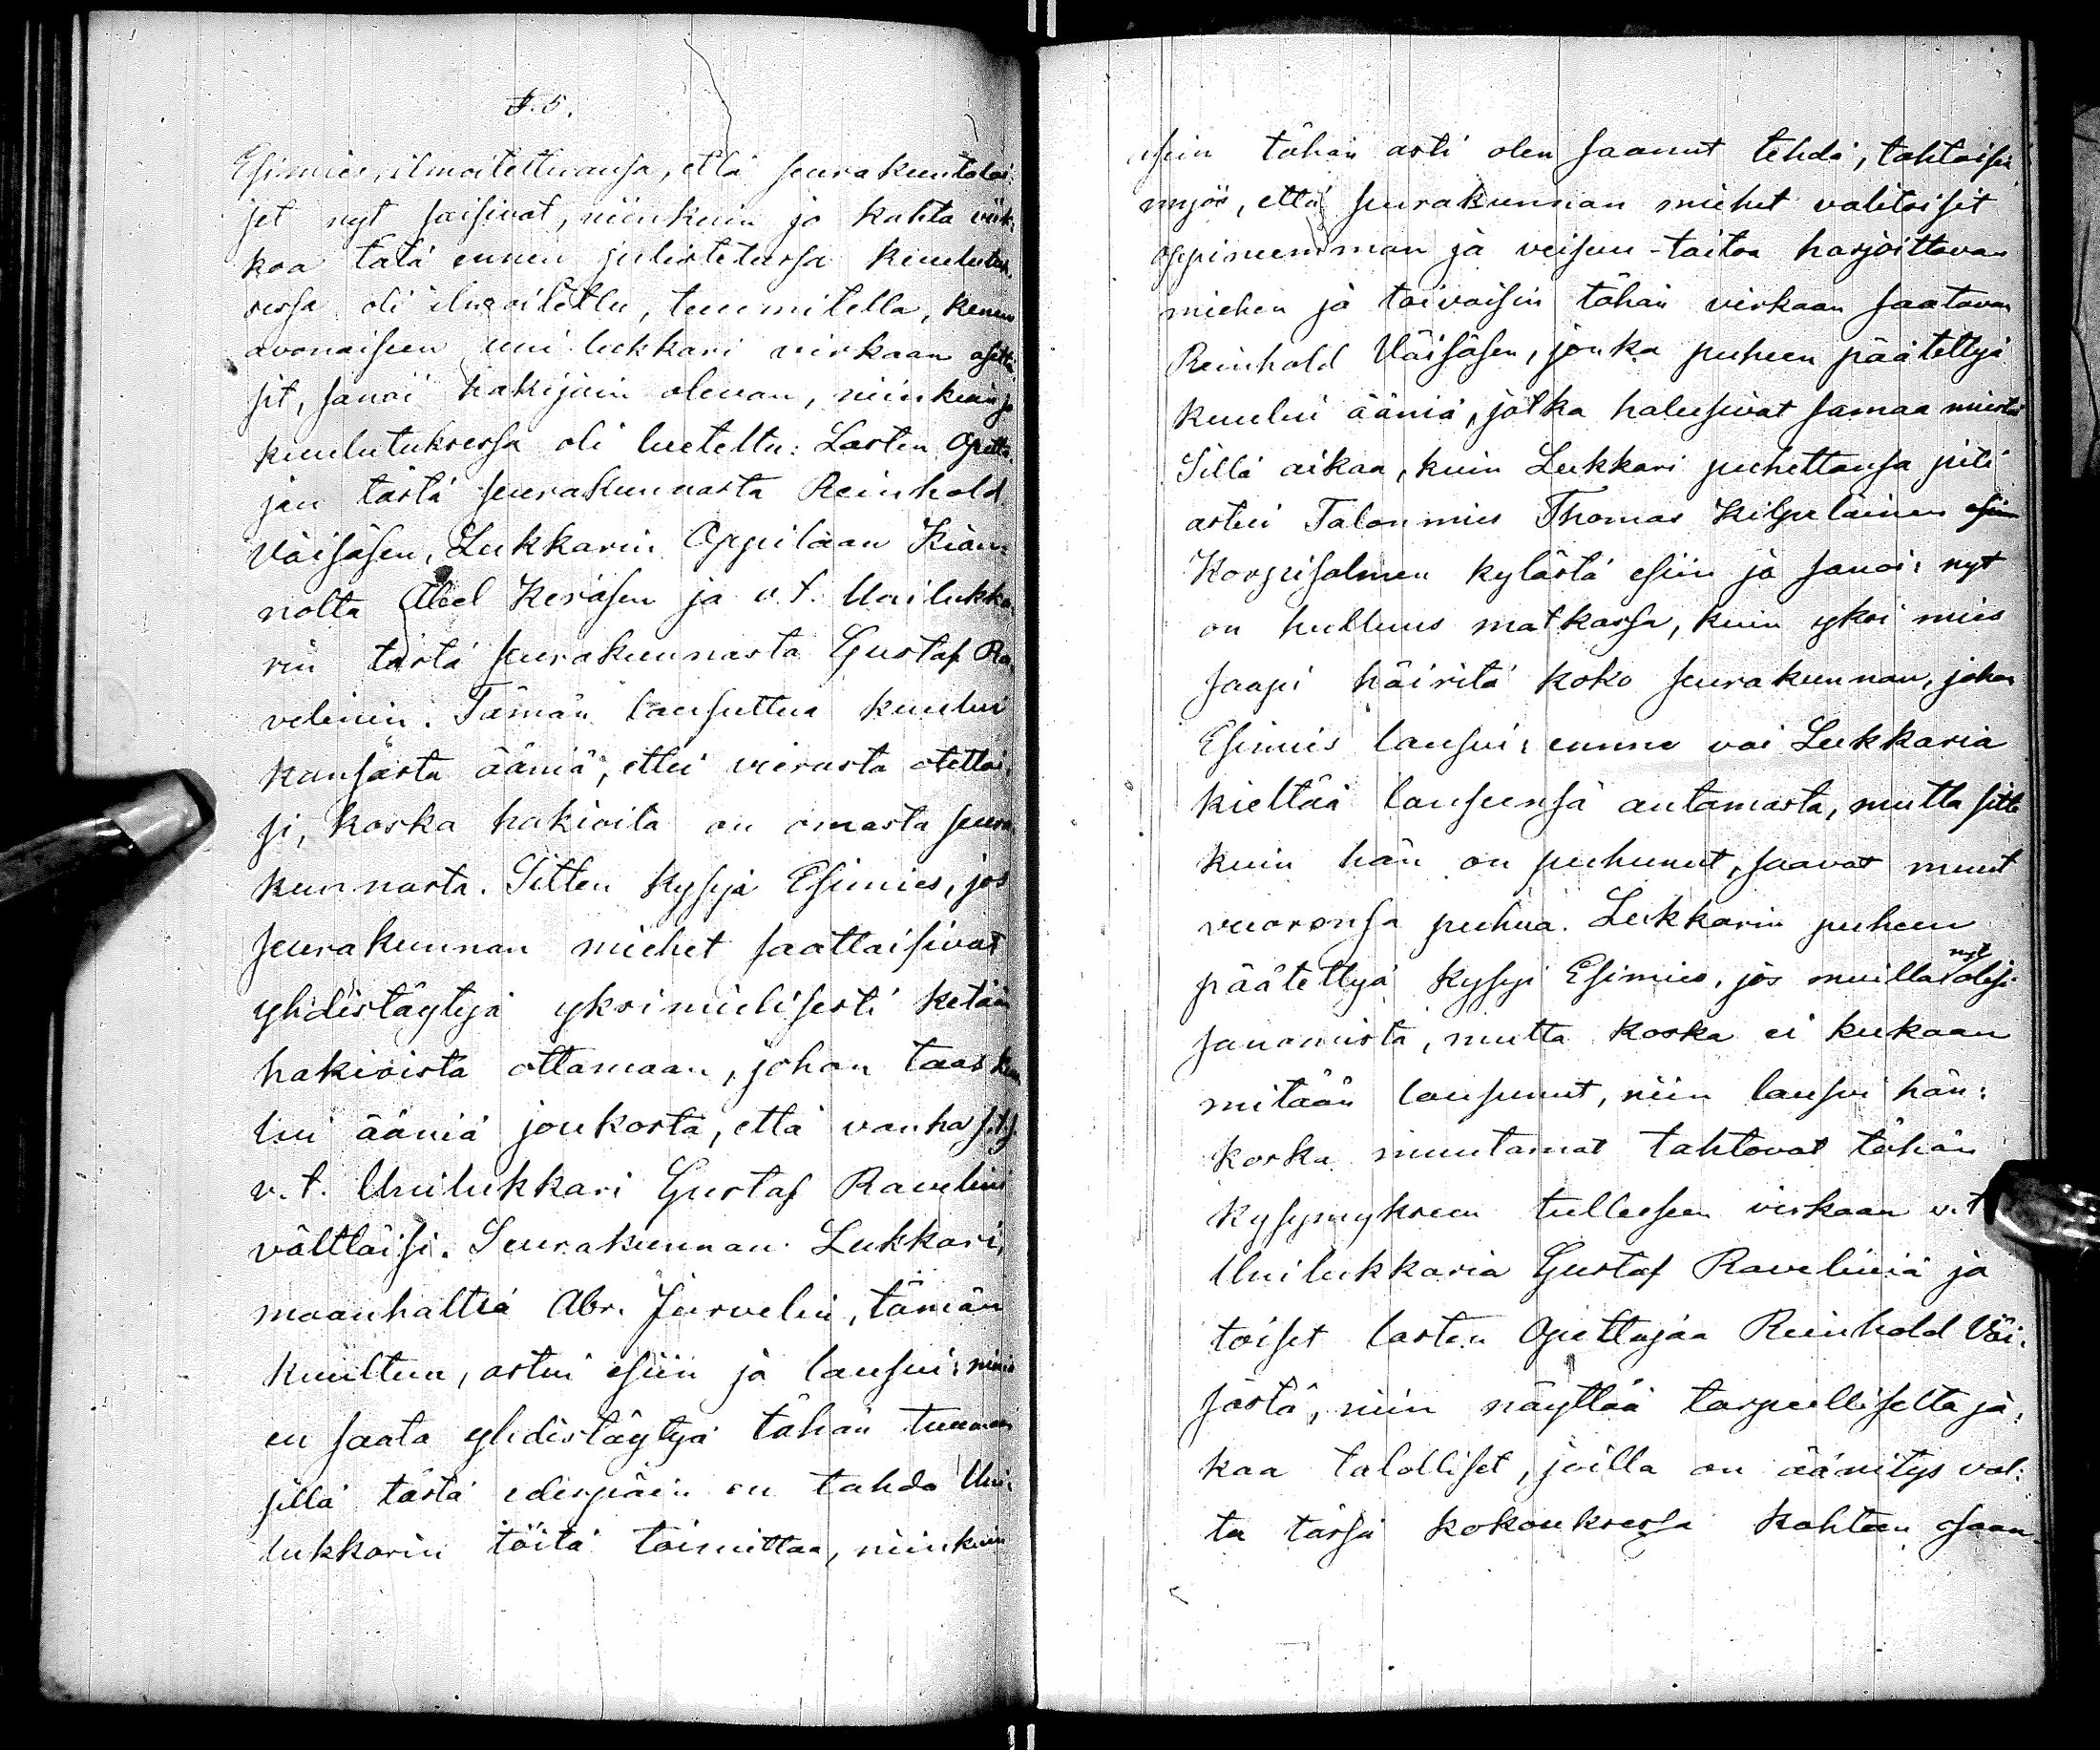 §. 5.
Esimies, ilmoitettuansa, että seurakuntalai-
set nyt saisivat, niinkuin jo kahta viik-
koa tätä ennen julistetussa kuulutuk-
sessa oli ilmoitettu, tuumitella, kenen
avonaiseen uni lukkari virkaan asettai-
sit, sanoi hakijoin olevan, niinkuin jo
kuulutuksessa oli lueteltu: Lasten Opetta-
jan tästä seurakunnasta Reinhold
Väisäsen, Lukkarin Oppilaan Kian-
nolta Abel Keräsen ja v. t. Unilukka-
rin tästä seurakunnasta Gustaf Ra-
velinin. Tämän lausuttua kuului
kansasta ääniä, ettei vierasta otettai-
si, koska hakioita on omasta seura-
kunnasta. Sitten kysyi Esimies, jos
seurakunnan miehet saattaisivat
yhdistäytyä yksimielisesti ketään
hakioista ottamaan, johon taas kuu-
lui ääniä joukosta, että vanha
v. t. Unilukkari Gustaf Ravelini
välttäisi. Seurakunnan Lukkari,
maanhaltia Abr. Järvelin, tämän
kuultua, astui esiin ja lausui: minä
en saata yhdistäytyä tähän tuumaan
sillä tästä edespäin en tahdo Uni-
lukkarin töitä toimittaa, niinkuin
usein tähän asti olen saanut tehdä, tahtoisin
myös, että seurakunnan miehet valitsisit
oppineemman ja veisuu-taitoa harjoittavan
miehen ja toivoisin tähän virkaan saatavan
Reinhold Väisäsen, jonka puheen päätettyä
kuului ääniä, jotka halusivat samaa miestä
Sillä aikaa, kuin Lukkari puhettansa piti
astui Talonmies Thomas Kilpeläinen
Korpisalmen kylästä esiin ja sanoi: nyt
on hulluus matkassa, kuin yksi mies
saapi häiritä koko seurakunnan, johon
Esimies lausui: emme voi Lukkaria
kieltää lauseensa antamasta, mutta sitte
kuin hän on puhunut, saavat muut
vuoronsa puhua. Lukkarin puheen
päätettyä kysyi Esimies, jos muilla nyt olisi
sanomista, mutta koska ei kukaan
mitään lausunut, niin lausui hän:
koska muutamat tahtovat tähän
kysymykseen tulleeseen virkaan v. t
Unilukkaria Gustaf Raveliniä ja
toiset lasten Opettajaa Reinhold Väi-
säistä, niin näyttää tarpeelliselta ja-
kaa talolliset, joilla on äänitys val-
ta tässä kokouksessa kahteen osaan